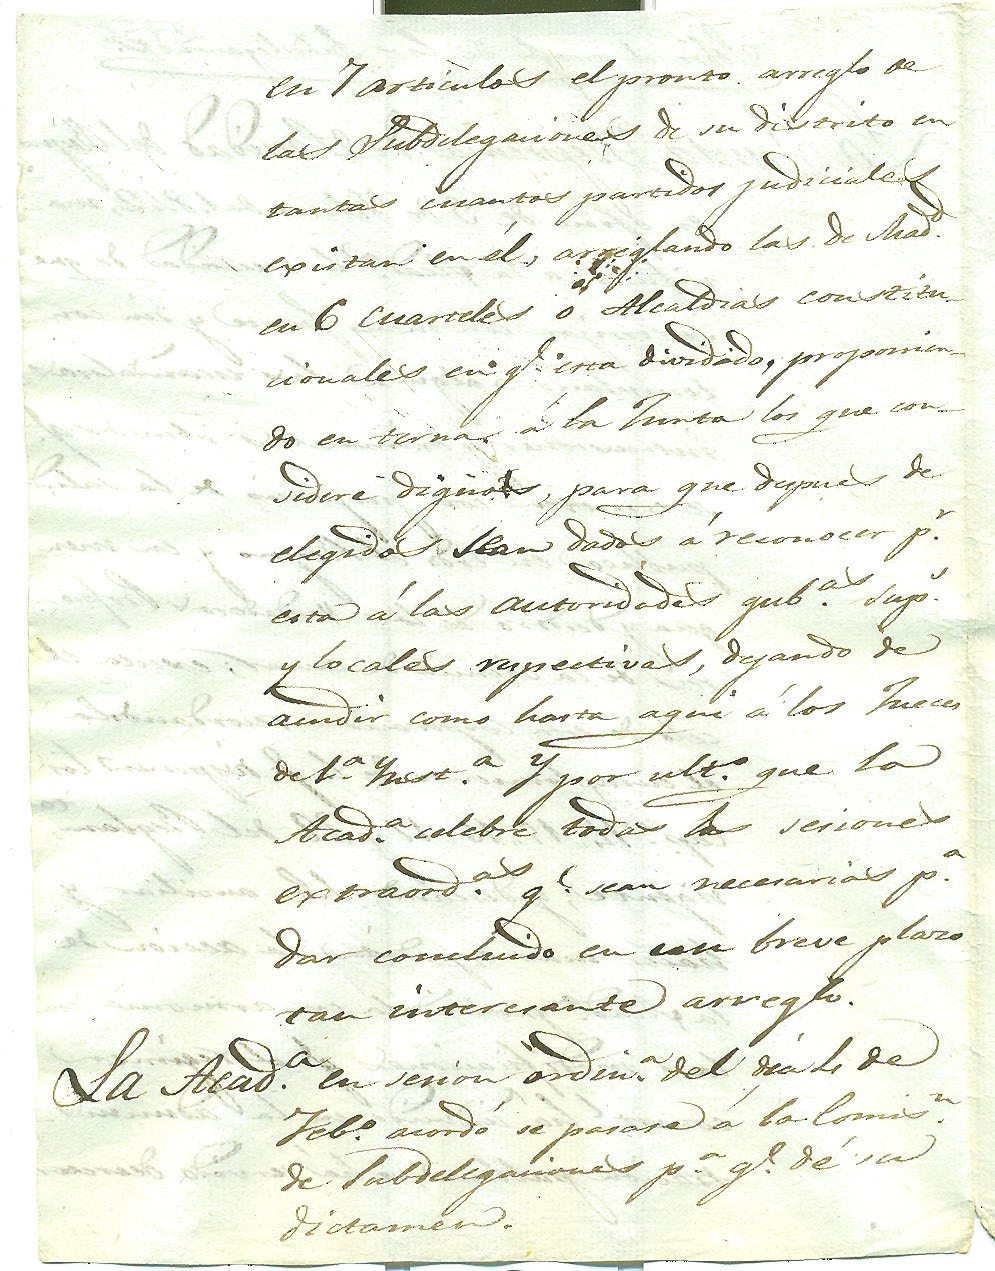 en 7 articulos el pronto arreglo de
las Subdelegaciones de su distrito en
tantas cuantos partidos judiciales
existan en él, arreglando las de Madd.
en 6 cuarteles ó Alcaldias constitu-
cionales en qe. esta dividido, proponien-
do en terna á la Junta los que con-
sidere dignos, para que depues de
elegidos sean dados á reconocer pr.
esta á las autoridades gubas. sups.
y locales respectivas, dejando de
acudir como hasta aqui á los Jueces
de 1.ª Inst.ª Y por ult.º que la
Acad.ª celebre todas las sesiones
extraordas. qe. sean necesarias p.ª
dar concluido en un breve plazo
tan interesante arreglo.
La Acad.ª en sesion ordin.ª del dia 4 de
Feb.º acordó se pasase á la Comisn.
de Subdelegaciones p.ª qe. dé su
dictamen.